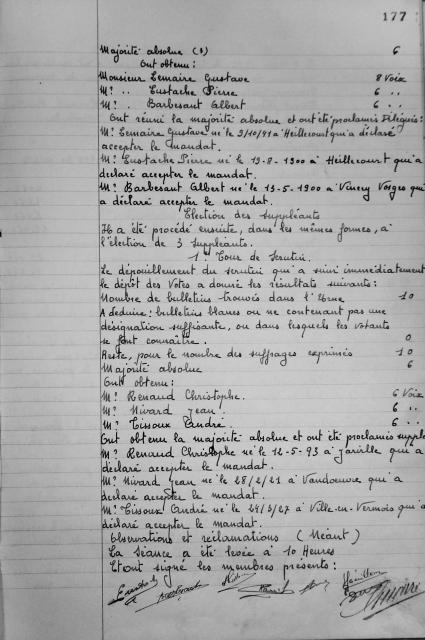 177
Majorité absolue (1) 6
Ont obtenu :
Monsieur Lemaire Gustave 8 Voix
M? .. Eustache Pierre 6 ..
M? . Barbesant Albert 6 ..
Ont réuni la majorité absolue et ont été proclamés Délégués :
M? Lemaire Gustave né le 9/10/91 à Heillecourt qui a déclaré
accepter le mandat.
M? Eustache Pierre né le 19-8-1900 à Heillecourt qui a
déclaré accepter le mandat.
M? Barbesant Albert né le 13-5-1900 à Vincey Vosges qui
a déclaré accepter le mandat.
Election des suppléants
Il a été procédé ensuite, dans les mêmes formes, à
l'élection de 3 suppléants.
1? Tour de Scrutin.
Le dépouillement du scrutin qui a suivi immédiatement
le dépôt des Votes a donné les résultats suivants :
Nombre de bulletins trouvés dans l'Urne 10
A déduire : bulletins blancs ou ne contenant pas une
désignation suffisante, ou dans lesquels les votants
se font connaître. 0
Reste, pour le nombre des suffrages exprimés 10
Majorité absolue 6
Ont obtenu :
M? Renaud Christophe. 6 Voix
M? Nivard Jean. 6 ..
M? Tisoux André. 6 ..
Ont obtenu la majorité absolue et ont été proclamés supplé
M? Renaud Christophe né le 12-5-93 à Jarville qui a
déclaré accepter le mandat.
M? Nivard Jean né le 25/2/21 à Vandoeuvre qui a
déclaré accepter le mandat.
M? Tisoux André né le 24/3/27 à Ville-en-Vermois qui a
déclaré accepter le mandat.
Observations et réclamations (Néant)
La Séance a été levée à 10 Heures
Etont signé les membres présents :